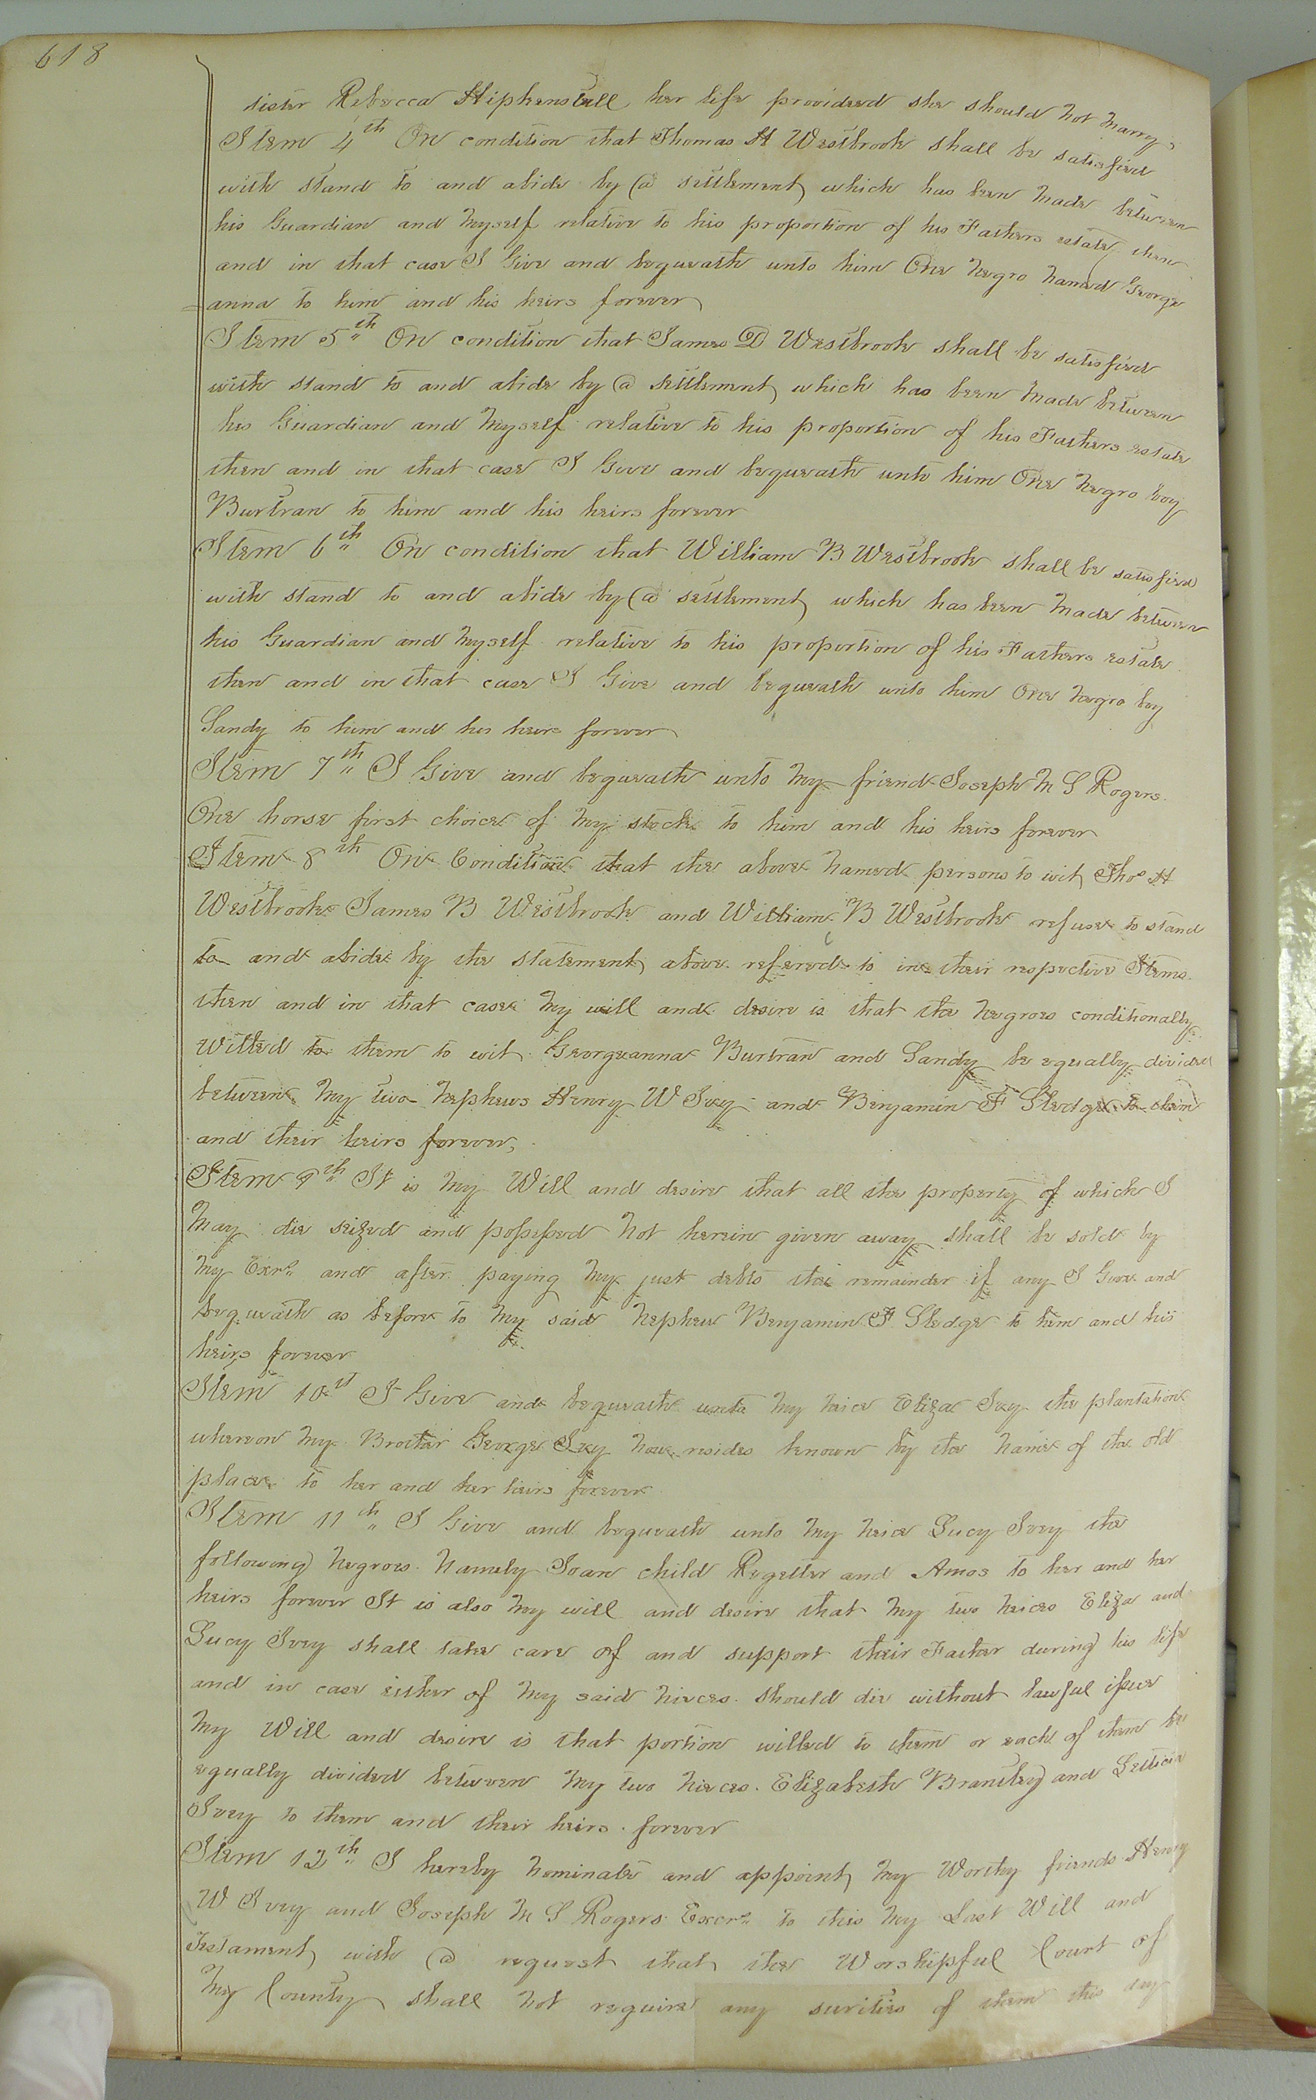 618
sister Rebecca Stiphens till her life provided she should not marry
Item 4th On condition that Thomas H Westbrook shall be satisfied
with stand to and abide by a settlement which has been made between
his Guardian and myself relative to his proportion of his Fathers estate then
and in that case I Give and bequeath unto him One negro named George
=anna to him and his heirs forever
Item 5th On condition that James D Westbrook shall be satisfied
with stand to and abide by a settlement which has been made between
his Guardian and myself relative to his proportion of his Fathers estate
then and in that case I Give and bequeath unto him One negro boy
Burtran to him and his heirs forever
Item 6th On condition that William B Westbrook shall be satisfied
with stand to and abide by a settlement which has been made between
his Guardian and myself relative to his proportion of his Fathers estate
then and in that case I Give and bequeath unto him One negro boy
Sandy to him and his heirs forever
Item 7th I Give and bequeath unto my friend Joseph M S Rogers
One horse first choice of my stock to him and his heirs forever
Item 8th On Condition that the above named persons to wit, Thos H
Westbrook James B Westbrook and William B Westbrook refuse to stand
to and abide by the statement above refered to in their respective Items
then and in that case my will and desire is that the negroes conditionally
Willed to them to wit Georgeanna Burtran and Sandy be equally divided
between my two nephews Henry W Ivey and Benjamin F Sledge to them
and their heirs forever,
Item 9th It is my Will and desire that all the property of which I
may die seized and possessed not herein given away shall be sold by
my Exrs and after paying my just debts the remainder if any I Give and
bequeath as before to my said nephew Benjamin F Sledge to him and his
heirs forever
Item 10th I Give and bequeath unto my neice Eliza Ivey the plantation
whereon my Brother George Ivey now resides known by the name of the old
place to her and her heirs forever
Item 11th I Give and bequeath unto my neice Lucy Ivey the
following negroes namely Joan child Regetter and Amos to her and her
heirs forever It is also my will and desire that my two neices Eliza and
Lucy Ivey shall take care of and support their Father during his life
and in case either of my said nieces should die without lawful issue
my Will and desire is that portion willed to them or each of them be
equally divided between my two nieces Elizabeth Brantley and Letticia
Ivey to them and their heirs forever
Item 12th I hereby nominate and appoint my Worthy friends Henry
W Ivey and Joseph M S Rogers Excrs to this my Last Will and
Testament, with a request that the Worshipful Court of
my County shall not require any surities of them this my